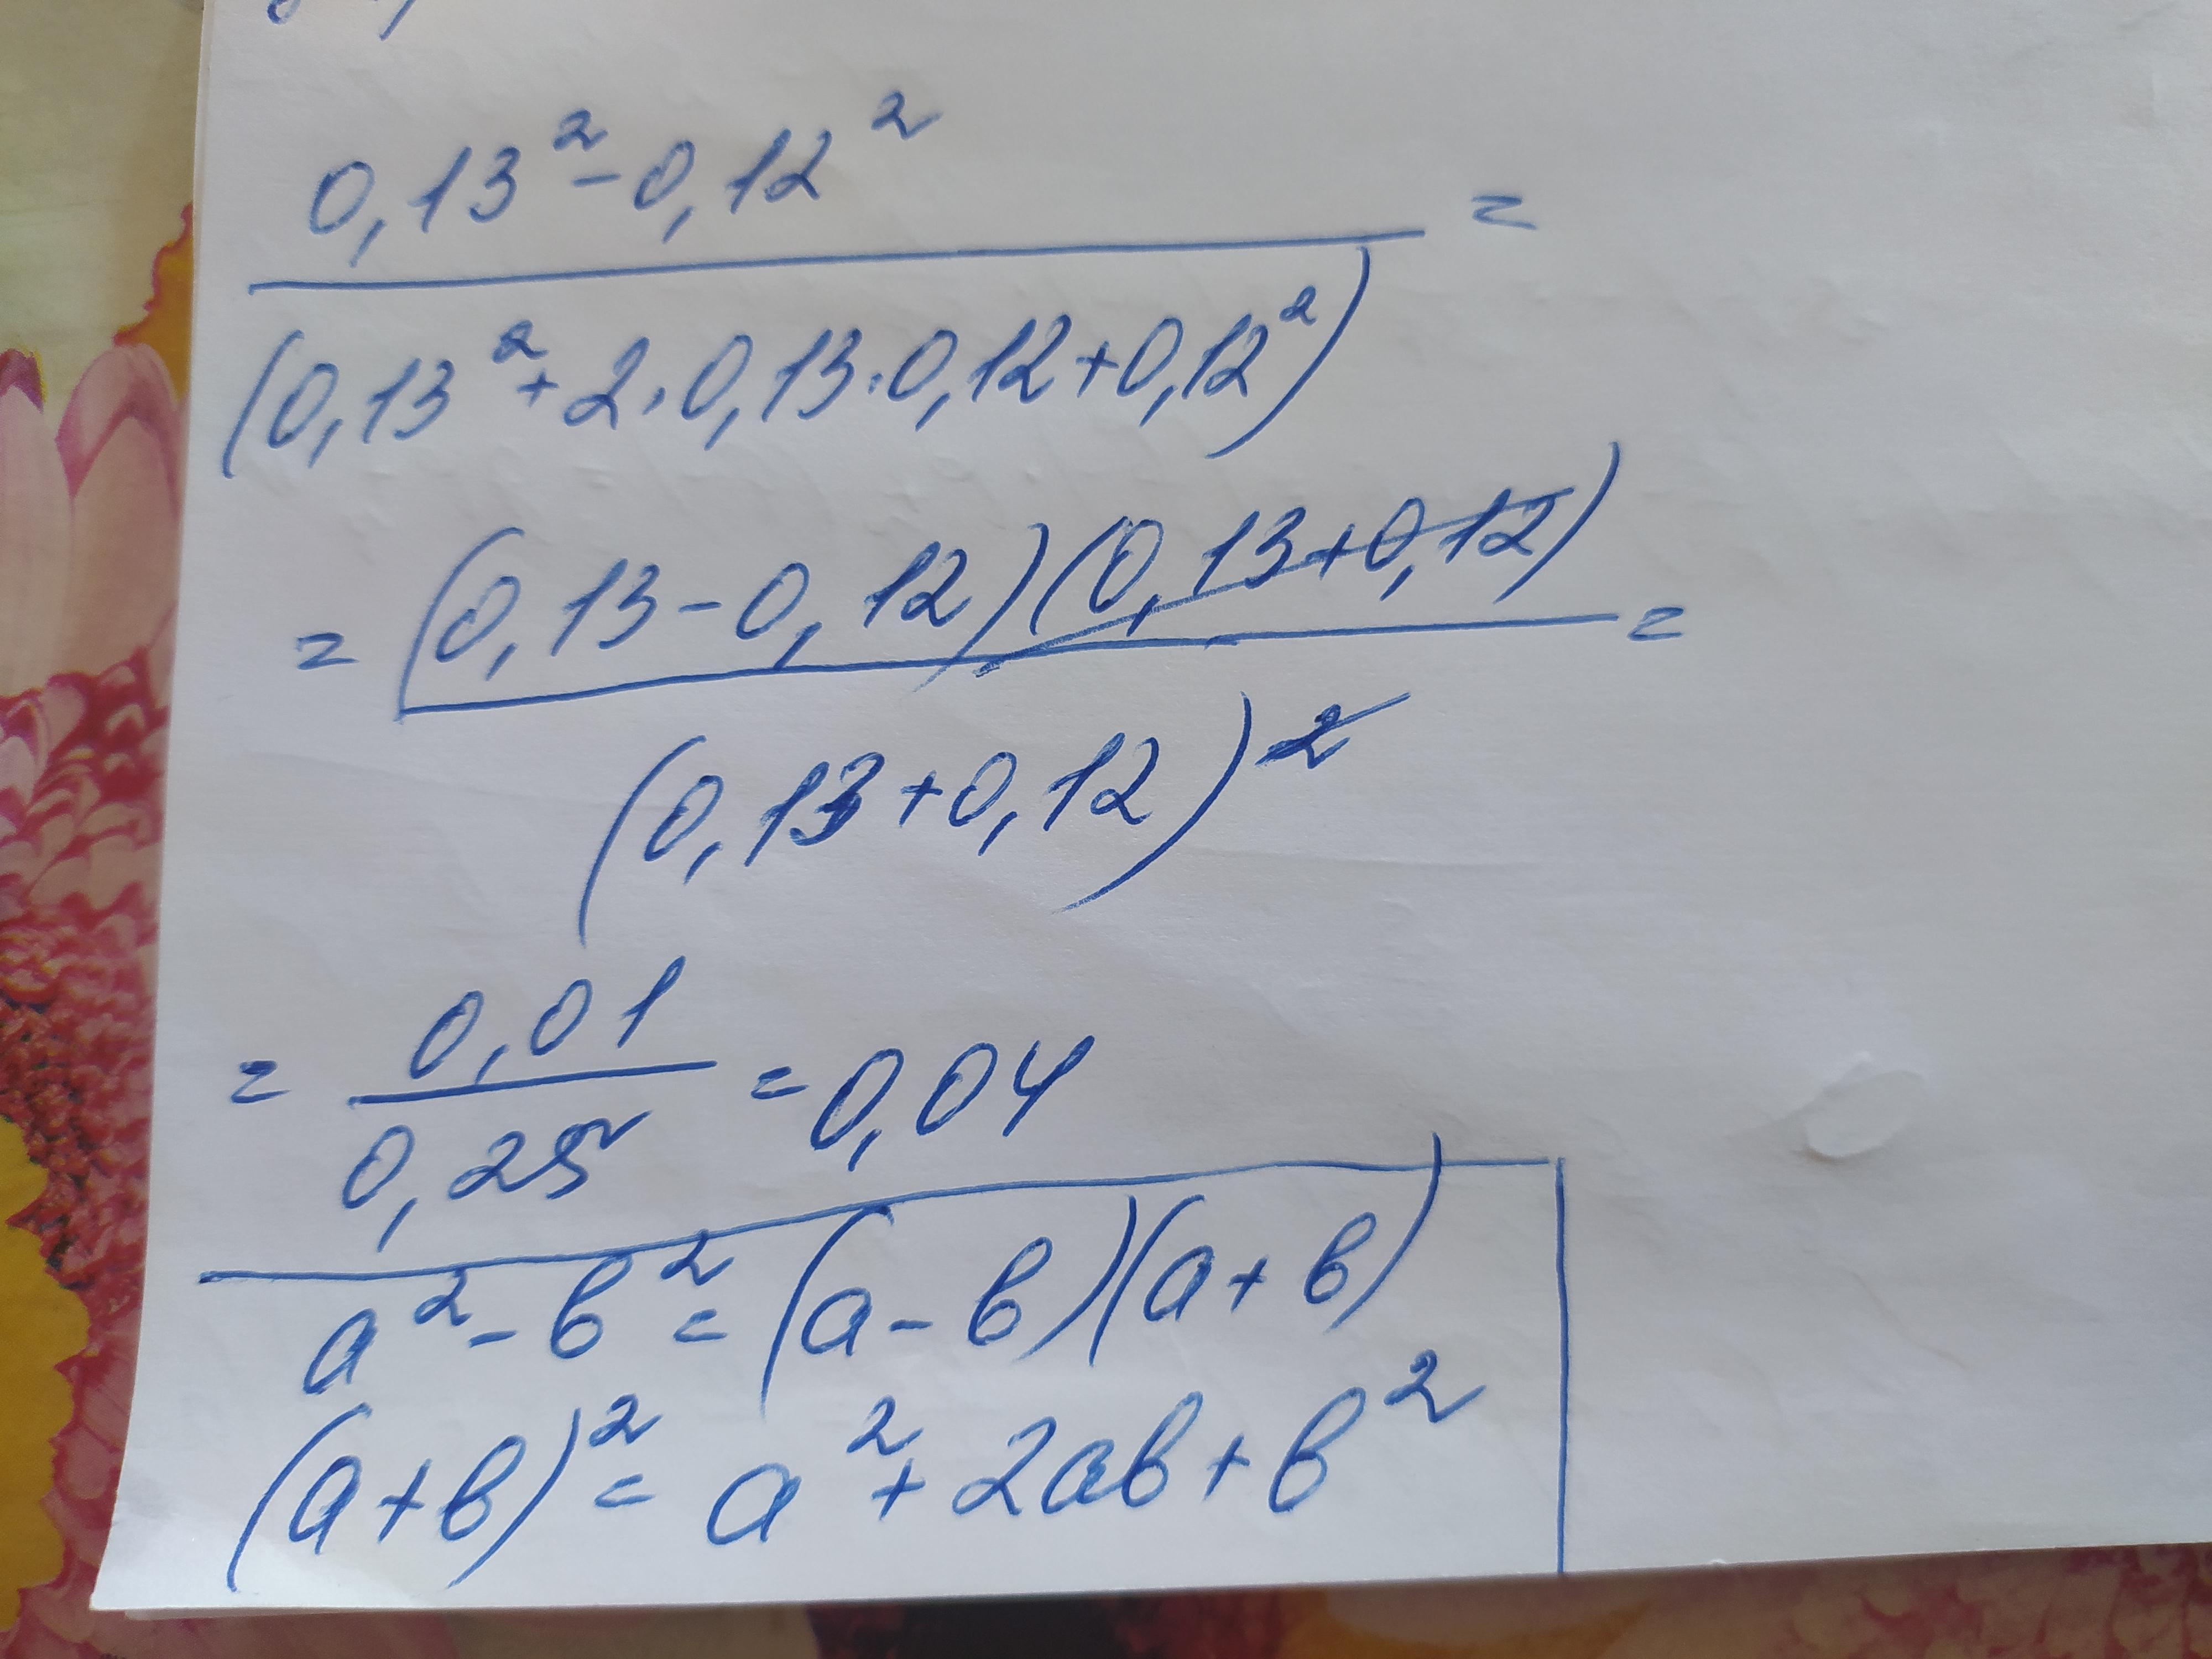 0,13² - 0,12² =
(0,13² + 2·0,13·0,12 + 0,12²)
= (0,13 - 0,12)(0,13 + 0,12) =
(0,13 + 0,12)²
= 0,01
0,25
= 0,04
a² - b² = (a - b)(a + b)
(a + b)² = a² + 2ab + b²